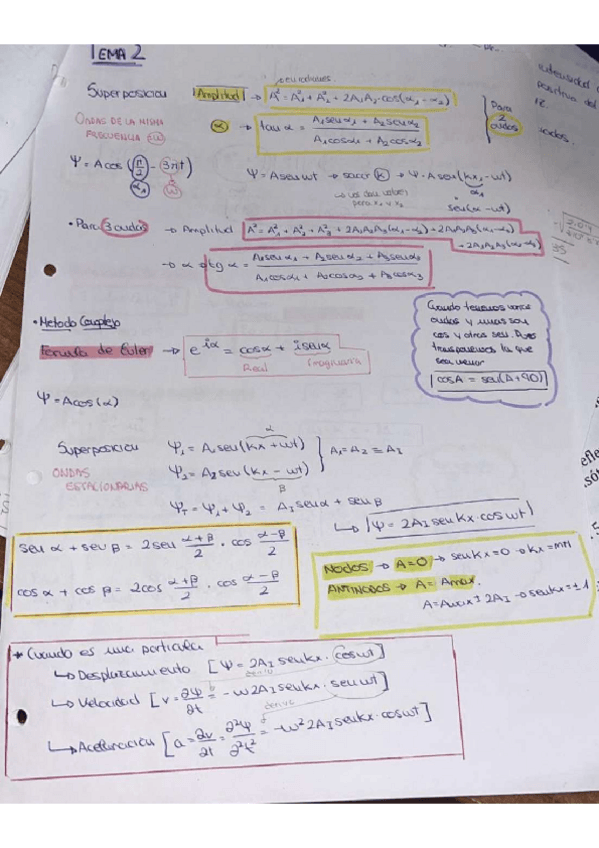 TEMA 2
Superposicion
ONDAS DE LA MISMA
FRECUENCIA (ω)
Amplitud → A² = A₁² + A₂² + 2A₁A₂·cos(α₁ - α₂)
α → tan α = (A₁ senα₁ + A₂ senα₂) / (A₁ cosα₁ + A₂ cosα₂)
Para
2
ondas
Ψ = A cos (π/2 - 3πt)
α₁ ω
Ψ = A sen ωt → sacar k → Ψ = A sen(kx₁ - ωt)
α₁
sen(α - ωt)
• Para 3 ondas → Amplitud A² = A₁² + A₂² + A₃² + 2A₁A₂(α₁-α₂) + 2A₁A₃(α₁-α₃)
+ 2A₂A₃(α₂-α₃)
→ α → tg α = (A₁ senα₁ + A₂ senα₂ + A₃ senα₃) / (A₁ cosα₁ + A₂ cosα₂ + A₃ cosα₃)
• Metodo Complejo
Formula de Euler → e^iα = cosα + i senα
Real Imaginaria
Cuando tenemos varias
ondas y unas son
cos y otras sen.
transponemos la que
sea menor
cos A = sen(A+90)
Ψ = A cos(α)
Superposicion
ONDAS
ESTACIONARIAS
α
Ψ₁ = A₁ sen(kx + ωt)
Ψ₂ = A₂ sen(kx - ωt)
β
A₁ = A₂ = A_I
Ψ_T = Ψ₁ + Ψ₂ = A_I senα + sen β
↳ Ψ = 2A_I sen kx · cos ωt
sen α + sen β = 2sen (α+β)/2 · cos (α-β)/2
cos α + cos β = 2cos (α+β)/2 · cos (α-β)/2
NODOS → A=0 → sen kx = 0 → kx = mπ
ANTINODOS → A = Amax.
A = Amax = ± 2A_I → sen kx = ± 1
* Cuando es una particula
↳ Desplazamiento [Ψ = 2A_I sen kx · cos ωt]
derivo
↳ Velocidad [v = ∂Ψ/∂t = -ω 2A_I sen kx · sen ωt]
derivo
↳ Aceleracion [a = ∂v/∂t = ∂²Ψ/∂²t² = -ω² 2A_I sen kx · cos ωt]